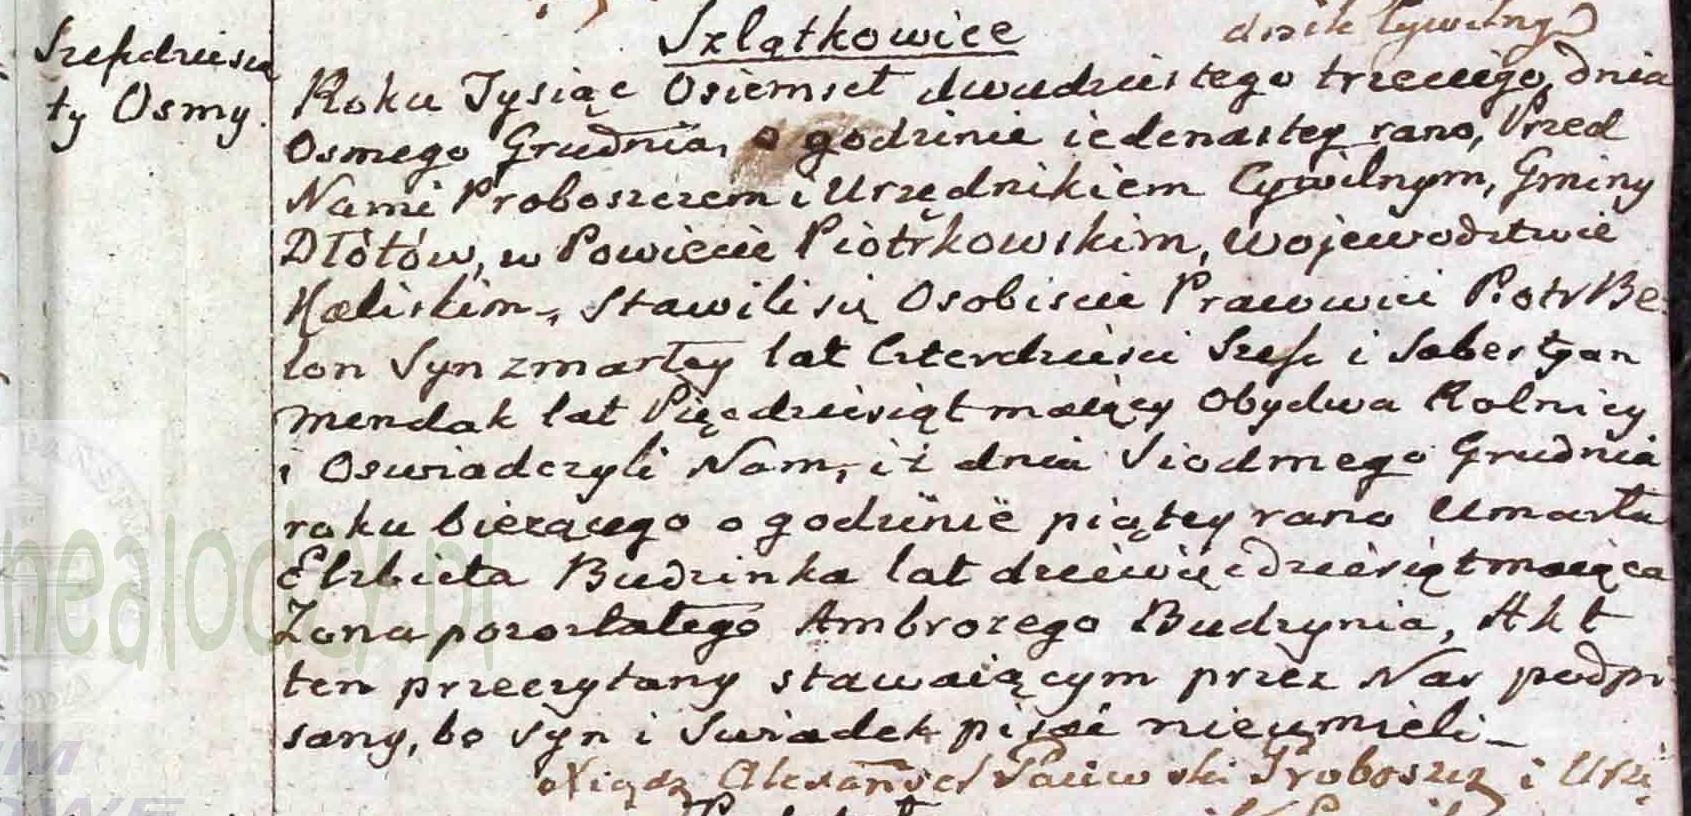 dnik Cywilny
Szlątkowice
Szesdziesią
ty Osmy.
Roku Tysiąc Osiemset dwudziestego trzeciego, dnia
Osmego Grudnia, o godzinie iedenastey rano, Przed
Nami Proboszczem i Urzędnikiem Cywilnym, Gminy
Dłótów, w Powiecie Piotrkowskim, Wojewodztwie
Kaliskim, Stawili się Osobiscie Pracowici Piotr Be
lon Syn zmarłey lat Czterdziesci Szesc i Sobestyan
Mendak lat Pięcdziesiąt maiący Obydwa Rolnicy
i Oswiadczyli Nam, iż dnia Siodmego Grudnia
roku bieżącego o godzinie piątey rano Umarła
Elzbieta Budzinka lat dziewięcdziesiąt maiąca
Zona pozostałego Ambrozego Budzynia, Akt
ten przeczytany stawaiącym przez Nas podpi
sany, bo Syn i Swiadek pisać nieumieli
Xiądz Alexander Proboszcz i Urzę
nealodzy.pl